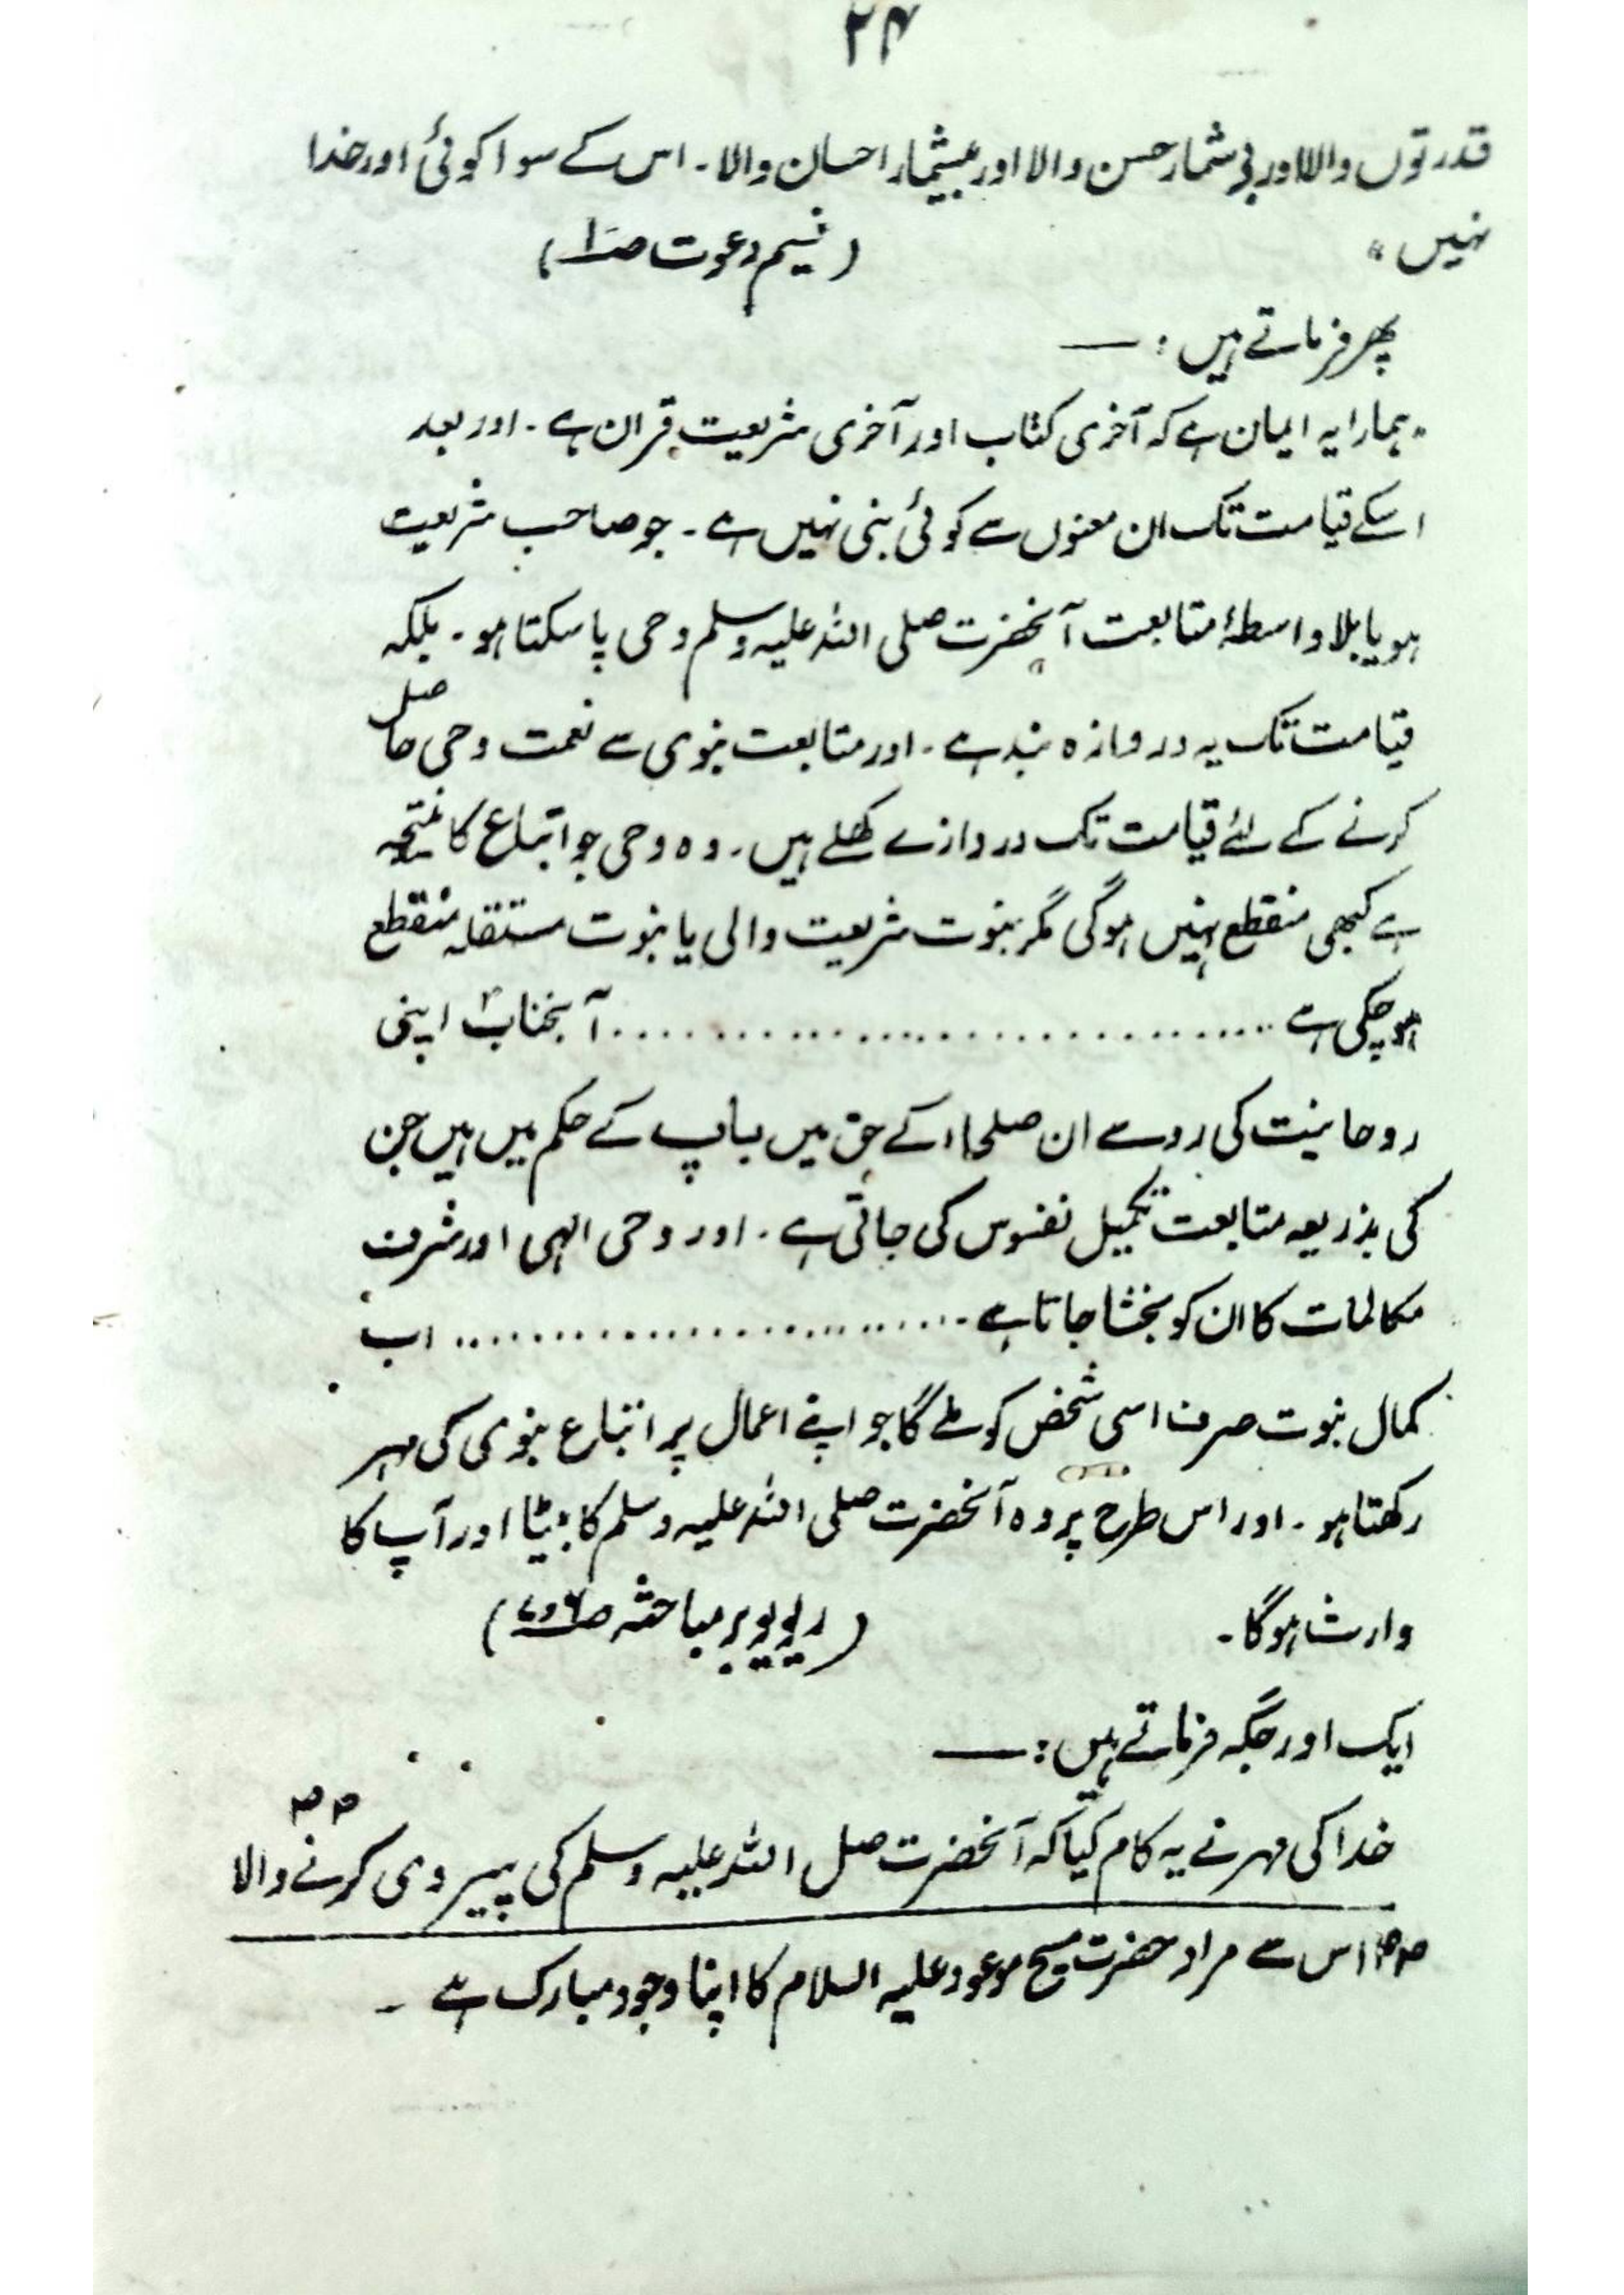 ۲۴
قدرتوں والا اور بے شمار حسن والا اور بیشمار احسان والا۔ اس کے سوا کوئی اور خدا
نہیں"
(نسیم دعوت صـ۱)
پھر فرماتے ہیں:—
"ہمارا یہ ایمان ہے کہ آخری کتاب اور آخری شریعت قرآن ہے۔ اور بعد
اسکے قیامت تک ان معنوں سے کوئی نبی نہیں ہے۔ جو صاحب شریعت
ہو یا بلا واسطۂ متابعت آنحضرت صلی اللہ علیہ وسلم وحی پا سکتا ہو۔ بلکہ
قیامت تک یہ دروازہ بند ہے۔ اور متابعت نبوی سے نعمت وحی حاصل
کرنے کے لئے قیامت تک دروازے کھلے ہیں۔ وہ وحی جو اتباع کا نتیجہ
ہے کبھی منقطع نہیں ہوگی مگر نبوت شریعت والی یا نبوت مستقلہ منقطع
ہو چکی ہے ................................ آنجنابؐ اپنی
روحانیت کی رو سے ان صلحاء کے حق میں باپ کے حکم میں ہیں جن
کی بذریعہ متابعت تکمیل نفوس کی جاتی ہے۔ اور وحی الٰہی اور شرف
مکالمات کا ان کو بخشا جاتا ہے ........................ اب
کمال نبوت صرف اسی شخص کو ملے گا جو اپنے اعمال پر اتباع نبوی کی مہر
رکھتا ہو۔ اور اس طرح پر وہ آنحضرت صلی اللہ علیہ وسلم کا بیٹا اور آپ کا
وارث ہوگا۔
(ریویو بر مباحثہ صـ۶و۷)
ایک اور جگہ فرماتے ہیں:—
خدا کی مہر نے یہ کام کیا کہ آنحضرت صلی اللہ علیہ وسلم کی پیروی کرنے والا
اس سے مراد حضرت مسیح موعود علیہ السلام کا اپنا وجود مبارک ہے۔